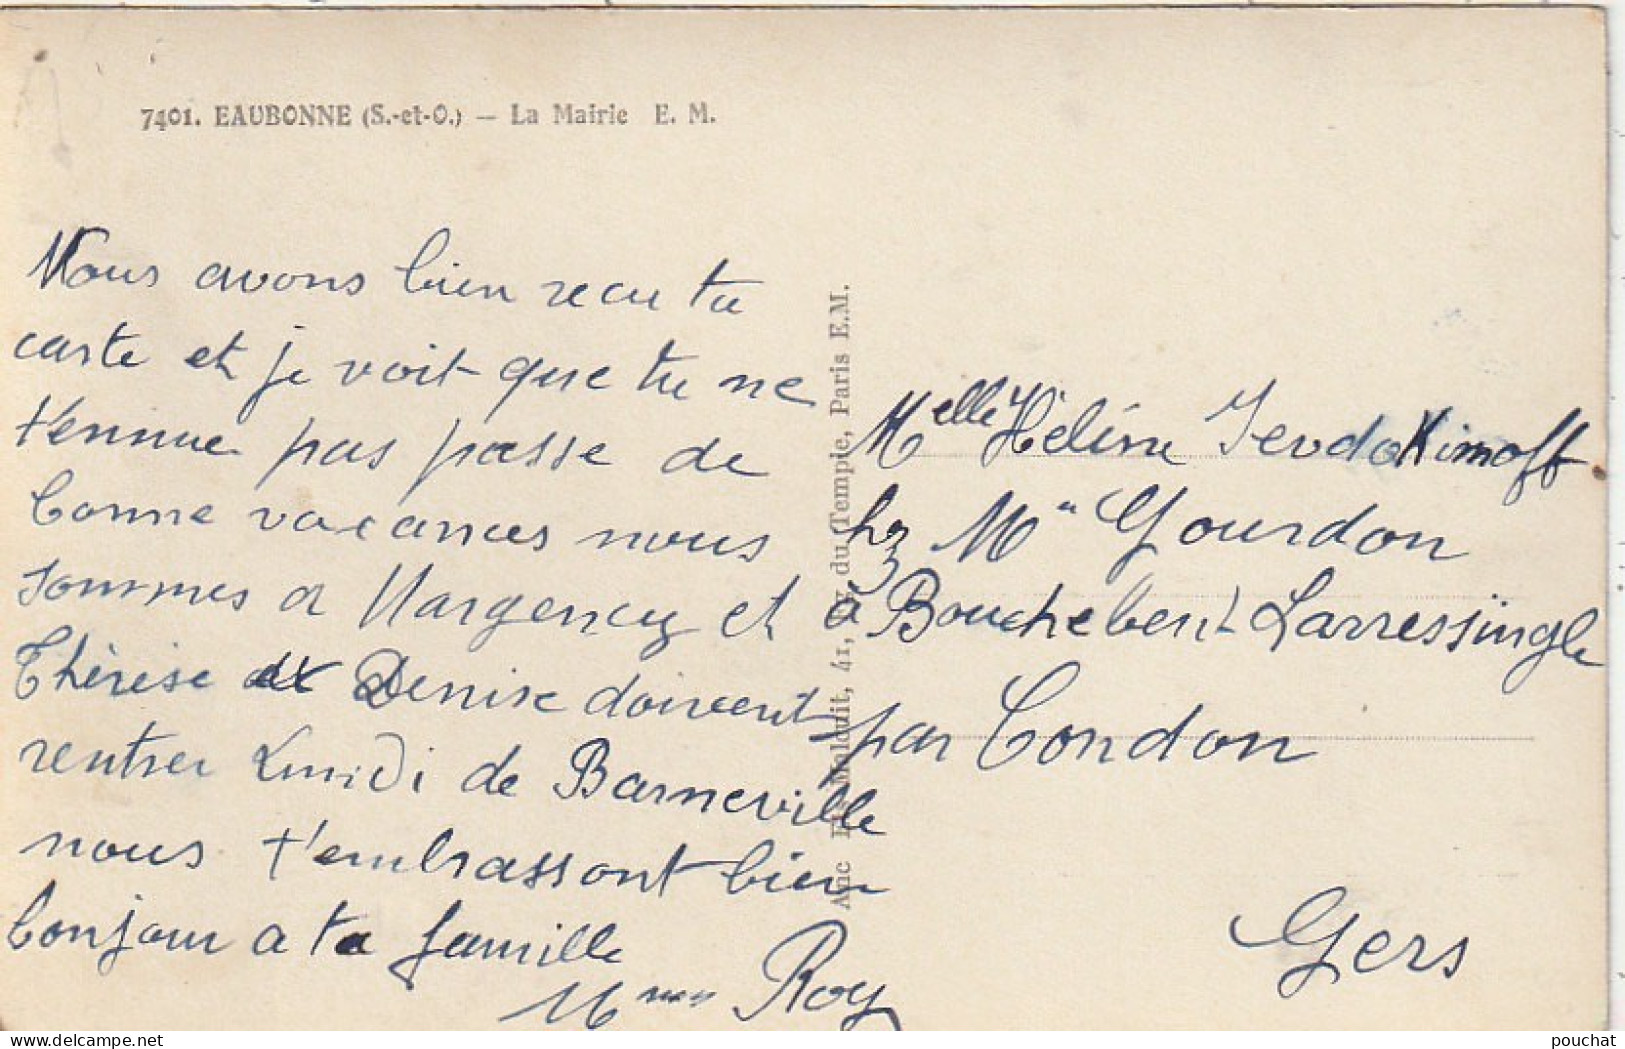 7401. EAUBONNE (S.-et-O.) — La Mairie E. M.
Nous avons bien recu ta
carte et je voit que tu ne
t'ennue pas passe de
bonne vacances nous
sommes a Margency et
Thérèse et Denise doivent
rentrer Lundi de Barneville
nous t'embrassont bien
bonjour a ta famille
Mme Roy
Anc Ets Malcuit, 41, du Temple, Paris E.M.
Melle Hélène Ievdokimoff
chz Mr Gourdon
à Bouchebent Larressingle
par Condon
Gers
delcampe.net
pouchat